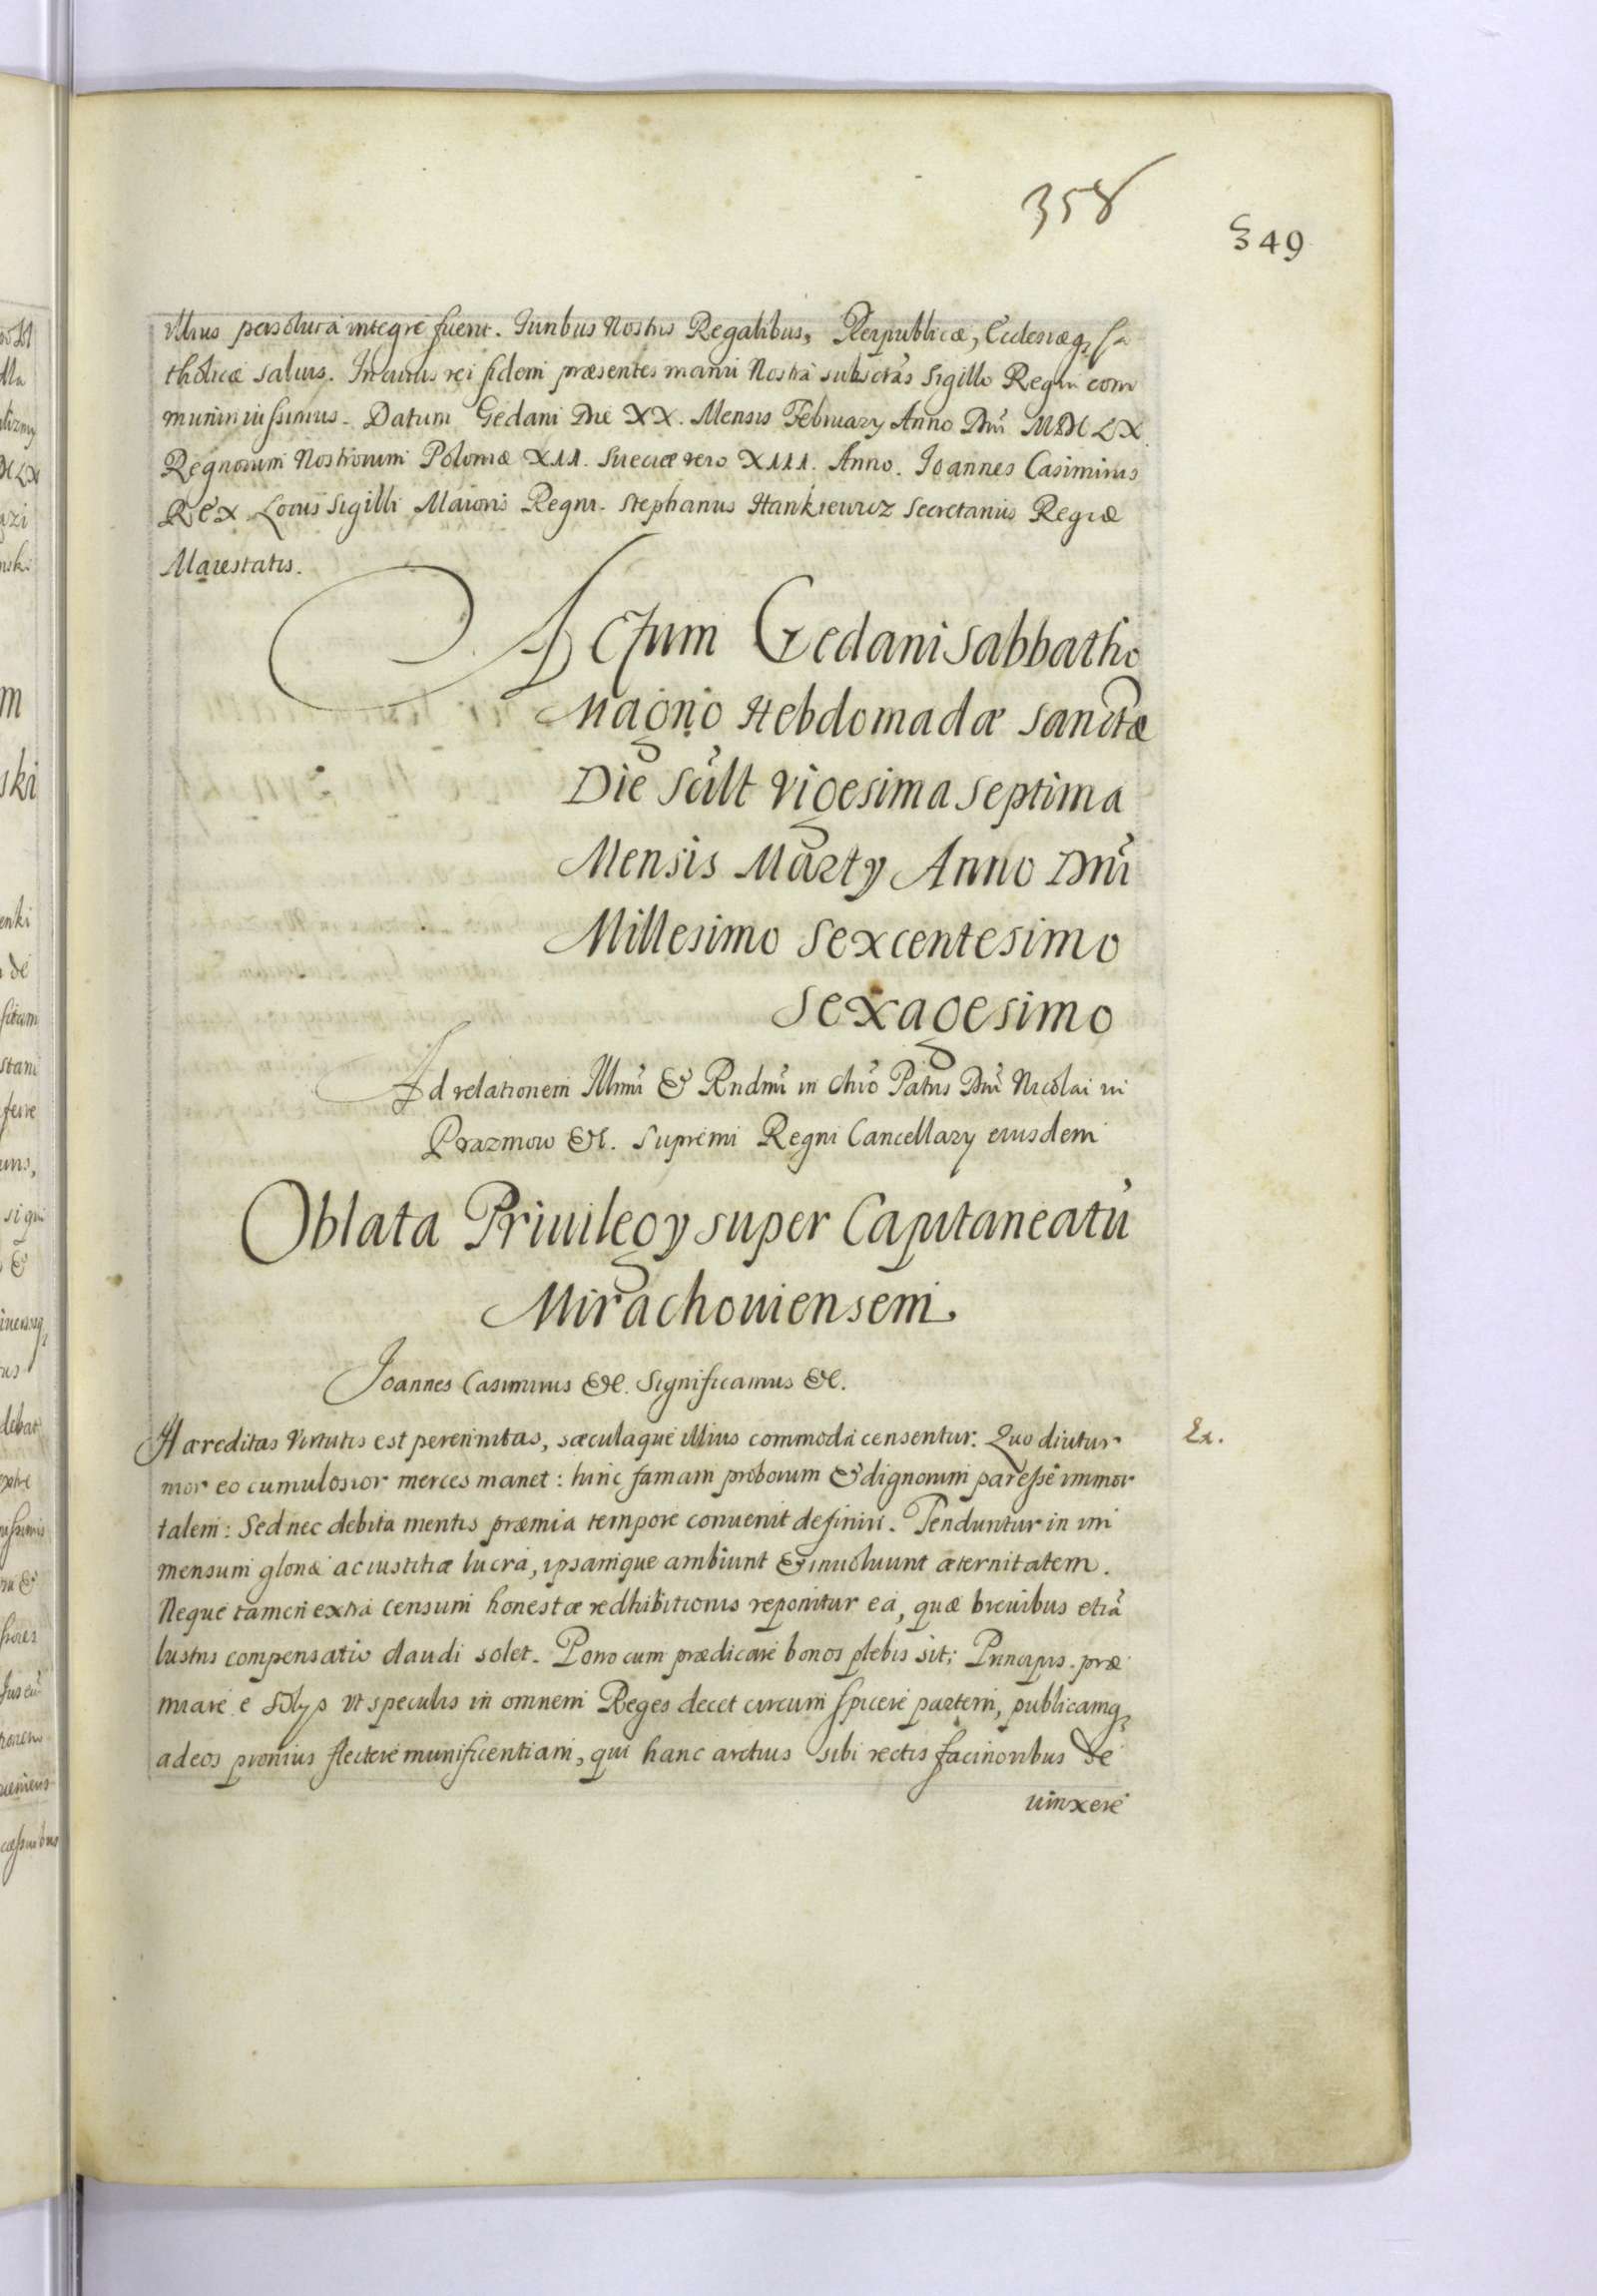 358
349
illius persoluta integre fuerit. Iuribus Nostris Regalibus, Reipublicæ, Ecclesiæq₃ Ca
tholicæ saluis. In cuius rei fidem præsentes manu Nostra subscrās Sigillo Regni com
muniri iussimus. Datum Gedani Die XX. Mensis February Anno Dnī MDCLX.
Regnorum Nostrorum Poloniæ XII. Sueciæ vero XIII. Anno. Ioannes Casimirus
Rex Locus Sigilli Maioris Regni. Stephanus Hankiewicz Secretarius Regiæ
Maiestatis.
Actum Gedani Sabbatho
Magno Hebdomadæ Sanctæ
Die Scilt Vigesima Septima
Mensis Marty Anno Dnī
Millesimo Sexcentesimo
Sexagesimo
Ad relationem Illmi & Rndmi in Chro Patris Dni Nicolai in
Prazmow &c. Supremi Regni Cancellary eiusdem
Oblata Priuilegy super Capitaneatū
Mirachouiensem.
Ioannes Casimirus &c. Significamus &c.
Hæreditas Virtutis est perennitas, sæculaque illius commoda censentur. Quo diutur
Ex.
nior eo cumulosior merces manet: hinc famam proborum & dignorum par esse immor
talem: Sed nec debita mentis præmia tempore conuenit definiri. Tenduntur in im
mensum gloriæ ac iustitiæ lucra, ipsamque ambiunt & inuoluunt æternitatem.
Neque tamen extra censum honestæ redhibitionis reponitur ea, quæ breuibus etiā
lustris compensatio claudi solet. Porro cum prædicare bonos plebis sit; Principis præ
miare e solys vt speculis in omnem Reges decet circum spicere partem, publicamq₃
adeos pronius flectere munificentiam, qui hanc arctius sibi rectis facinoribus de
uinxere